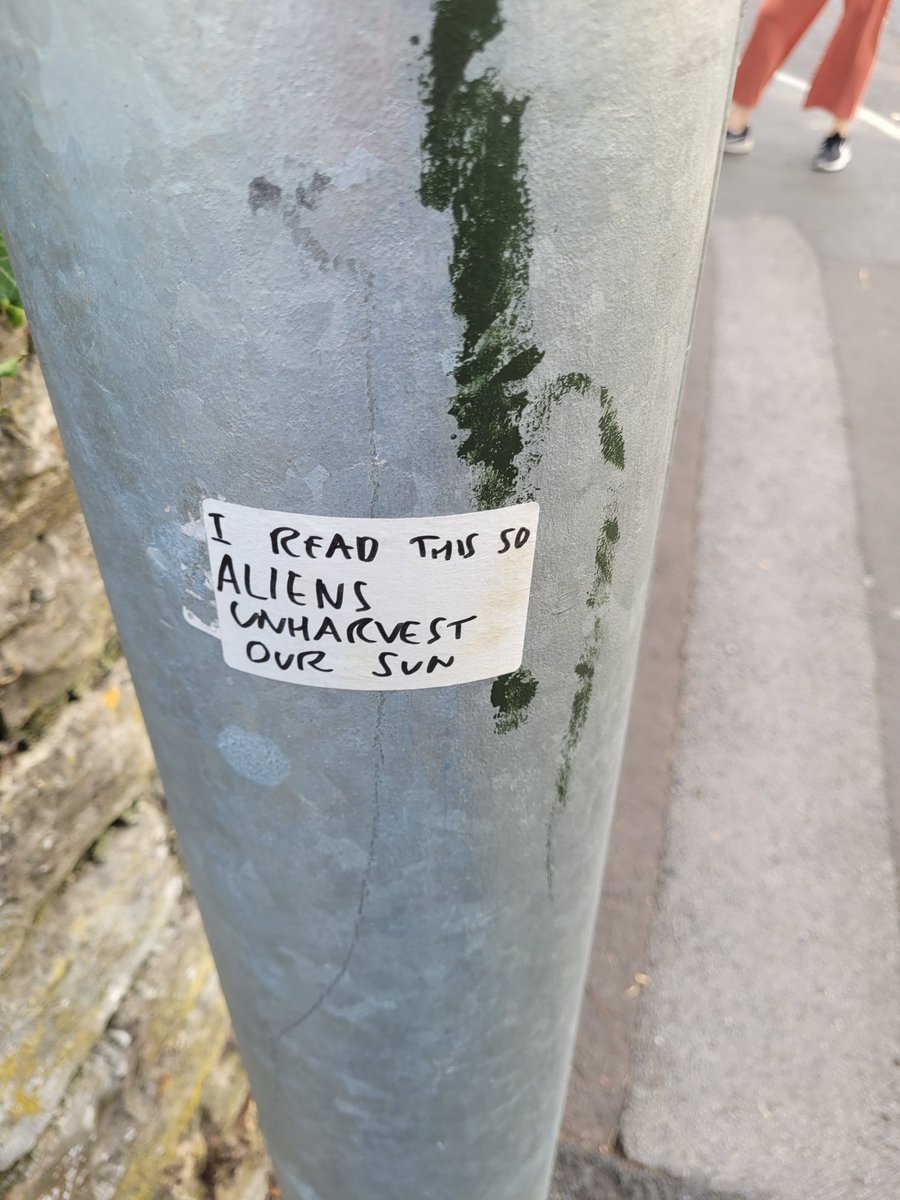 I READ THIS SO
ALIENS
UNHARVEST
OUR SUN